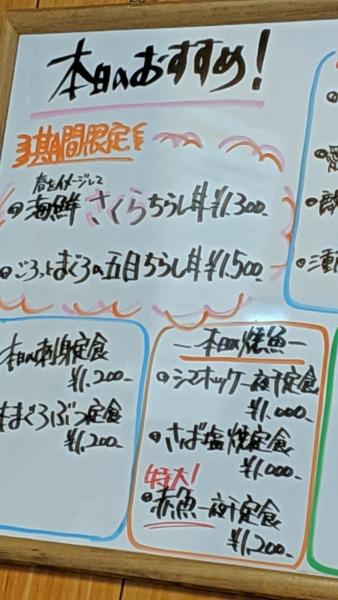 本日のおすすめ!
期間限定
春をイメージして
海鮮さくらちらし丼¥1,300-
ごろっとまぐろの五目ちらし丼¥1,500-
本日の刺身定食
¥1,200-
まぐろぶつ定食
¥1,200-
本日の焼魚
シマホッケ一夜干定食
¥1,000-
さば塩焼定食
¥1,000-
特大!
赤魚一夜干定食
¥1,200-